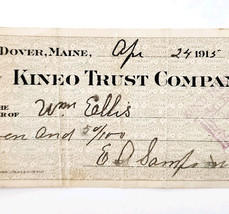 DOVER, MAINE, Apr 24 1915
KINEO TRUST COMPAN
HE
R OF Wm Ellis
en and 50/100
E D Samp